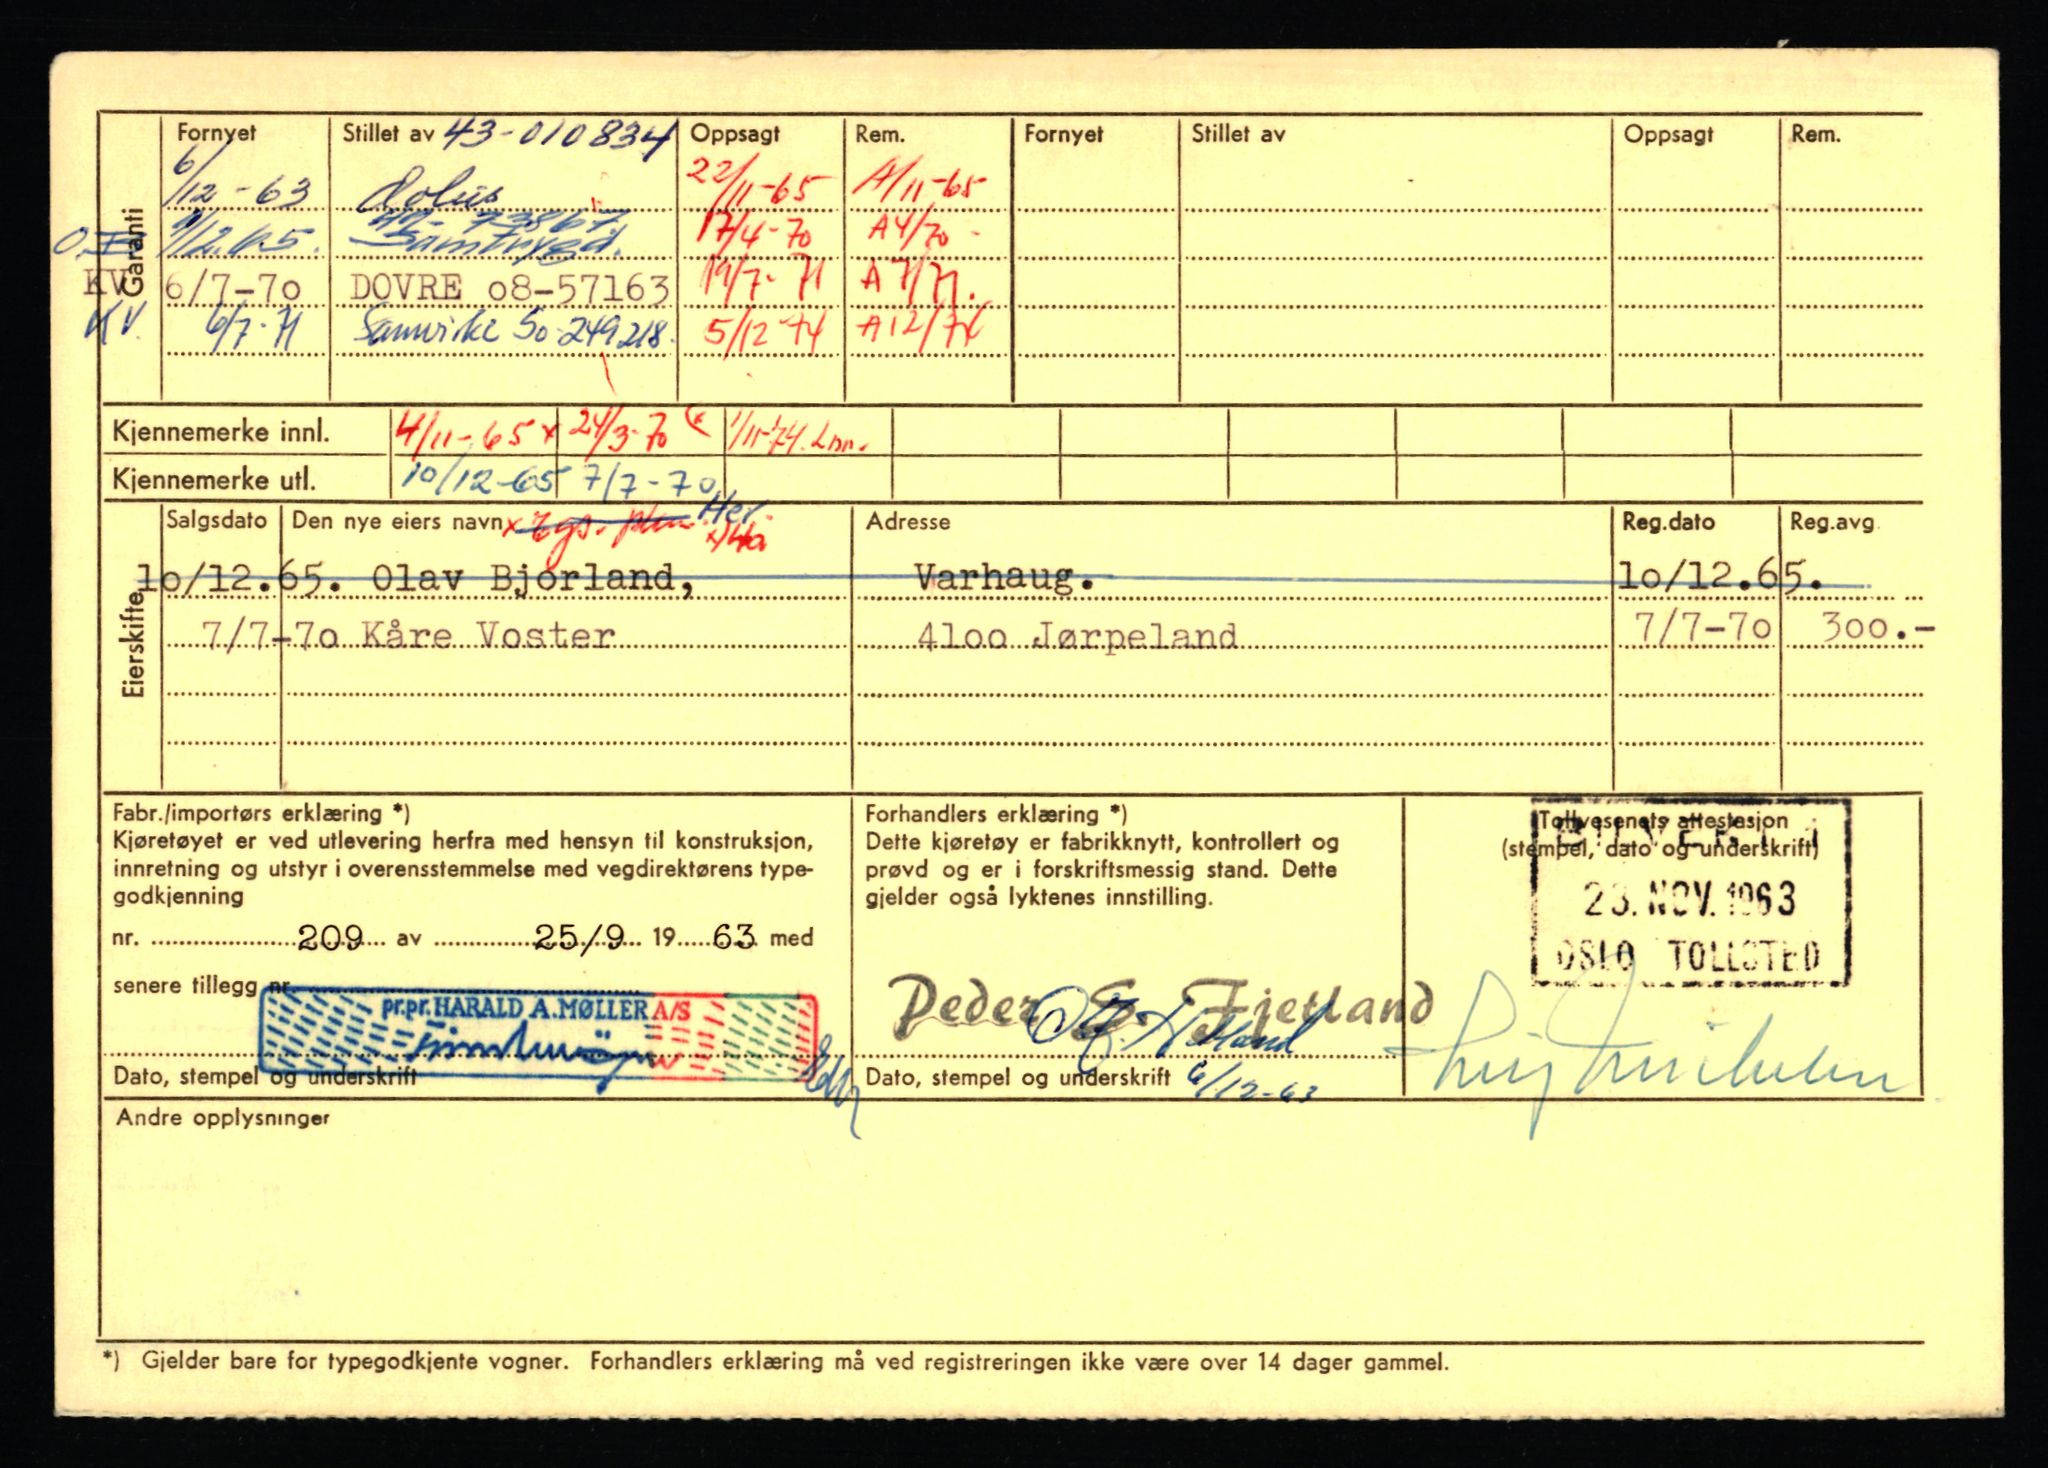 Fornyet Stillet av 43-010834 Oppsagt Rem. Fornyet Stillet av Oppsagt Rem.
Garanti
6/12-63 22/11-65 A/11-65
1/12.65. Samtrygd. 17/4-70 A4/70
KV 6/7-70 DOVRE 08-57163 19/7-71 A 7/71.
KV. 6/7-71 Samvirke 50-249218. 5/12-74 A12/74
Kjennemerke innl. 4/11-65 x 24/3-70 1/11-74.
Kjennemerke utl. 10/12-65 7/7-70
Eierskifte
Salgsdato Den nye eiers navn Adresse Reg.dato Reg.avg
10/12.65. Olav Bjorland, Varhaug. 10/12.65.
7/7-70 Kåre Voster 4100 Jørpeland 7/7-70 300.-
Fabr./importørs erklæring *)
Kjøretøyet er ved utlevering herfra med hensyn til konstruksjon,
innretning og utstyr i overensstemmelse med vegdirektørens type-
godkjenning
nr. 209 av 25/9 19 63 med
senere tillegg nr.
pr.pr. HARALD A. MØLLER A/S
Dato, stempel og underskrift
Forhandlers erklæring *)
Dette kjøretøy er fabrikknytt, kontrollert og
prøvd og er i forskriftsmessig stand. Dette
gjelder også lyktenes innstilling.
Peder E. Fjetland
Dato, stempel og underskrift 6/12-63
Tollvesenets attestasjon
(stempel, dato og underskrift)
23. NOV. 1963
OSLO TOLLSTED
Andre opplysninger
*) Gjelder bare for typegodkjente vogner. Forhandlers erklæring må ved registreringen ikke være over 14 dager gammel.